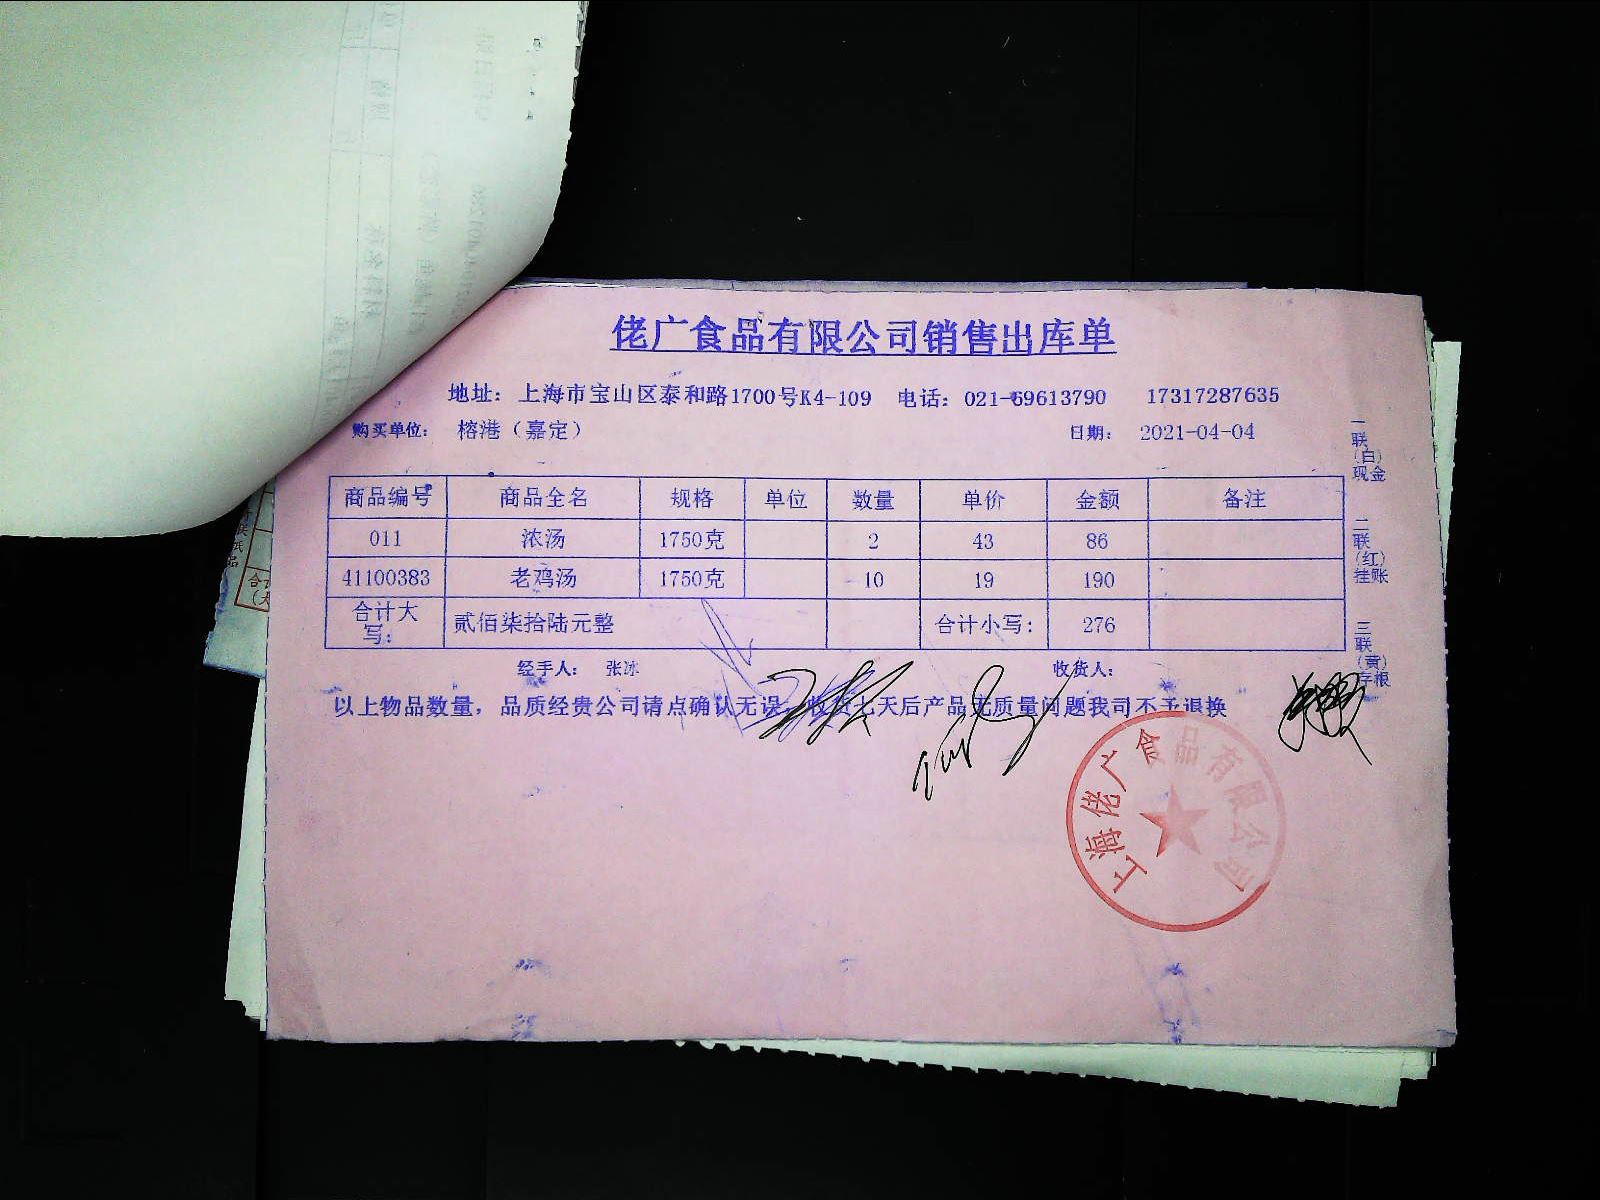 佬广食品有限公司销售出库单
地址：上海市宝山区泰和路1700号K4-109 电话：021-69613790 17317287635
购买单位： 榕港（嘉定） 日期： 2021-04-04
商品编号 商品全名 规格 单位 数量 单价 金额 备注
011 浓汤 1750克 2 43 86
41100383 老鸡汤 1750克 10 19 190
合计大写： 贰佰柒拾陆元整 合计小写: 276
经手人： 张冰 收货人：
以上物品数量，品质经贵公司请点确认无误，收货七天后产品无质量问题我司不予退换
一联（白）现金
二联（红）挂账
三联（黄）存根
上海佬广食品有限公司